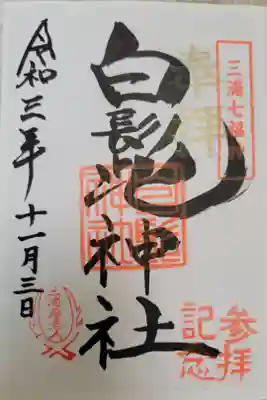 三浦七福神
奉拝
白髭神社
白髭
神社
参拝
記念
令和三年十一月三日
三浦寿老人